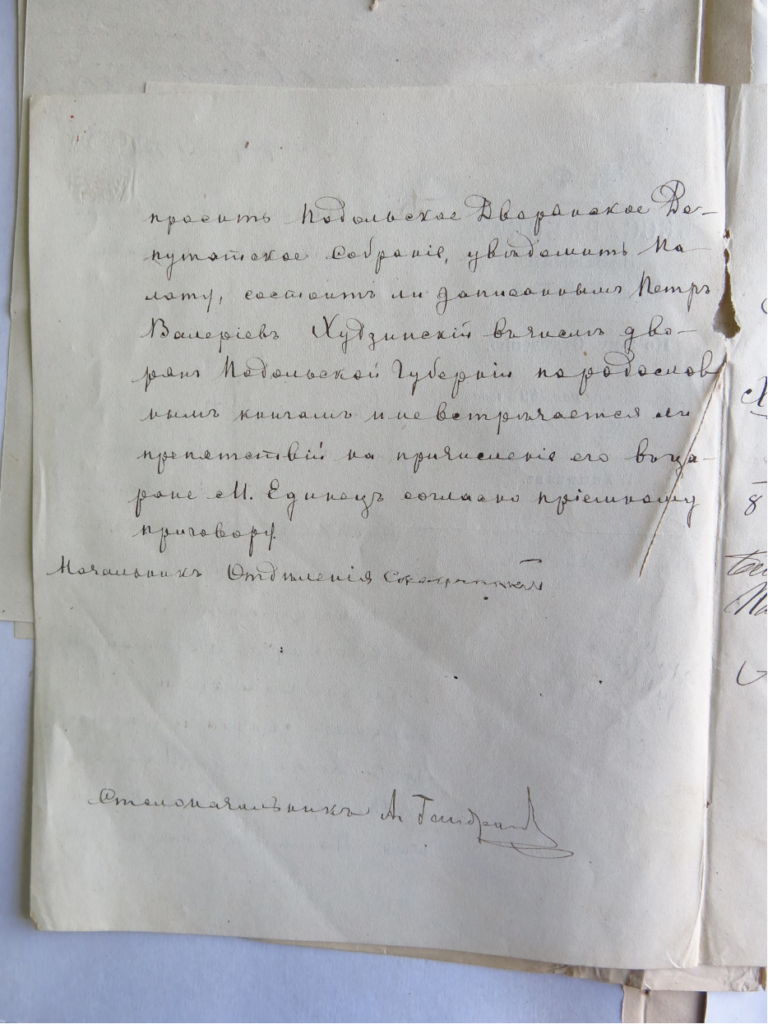 проситъ Подольское Дворянское Де-
путатское Собраніе, увѣдомить Па-
лату, состоитъ ли записаннымъ Петръ
Валеріевъ Худзинскій въ числѣ дво-
рянъ Подольской Губерніи по родослов
нымъ книгамъ и не встрѣчается ли
препятствій на причисленіе его въ ца-
ране м. Единецъ согласно пріемному
приговору.
Начальникъ Отдѣленія
Столоначальникъ А.